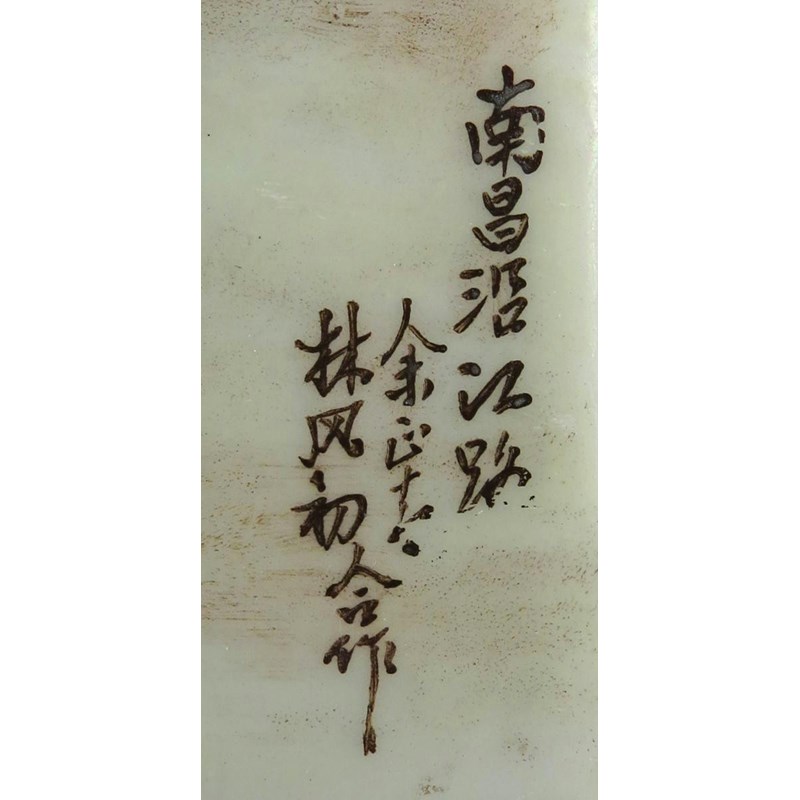 南昌沿江路
余正
林风初
合作